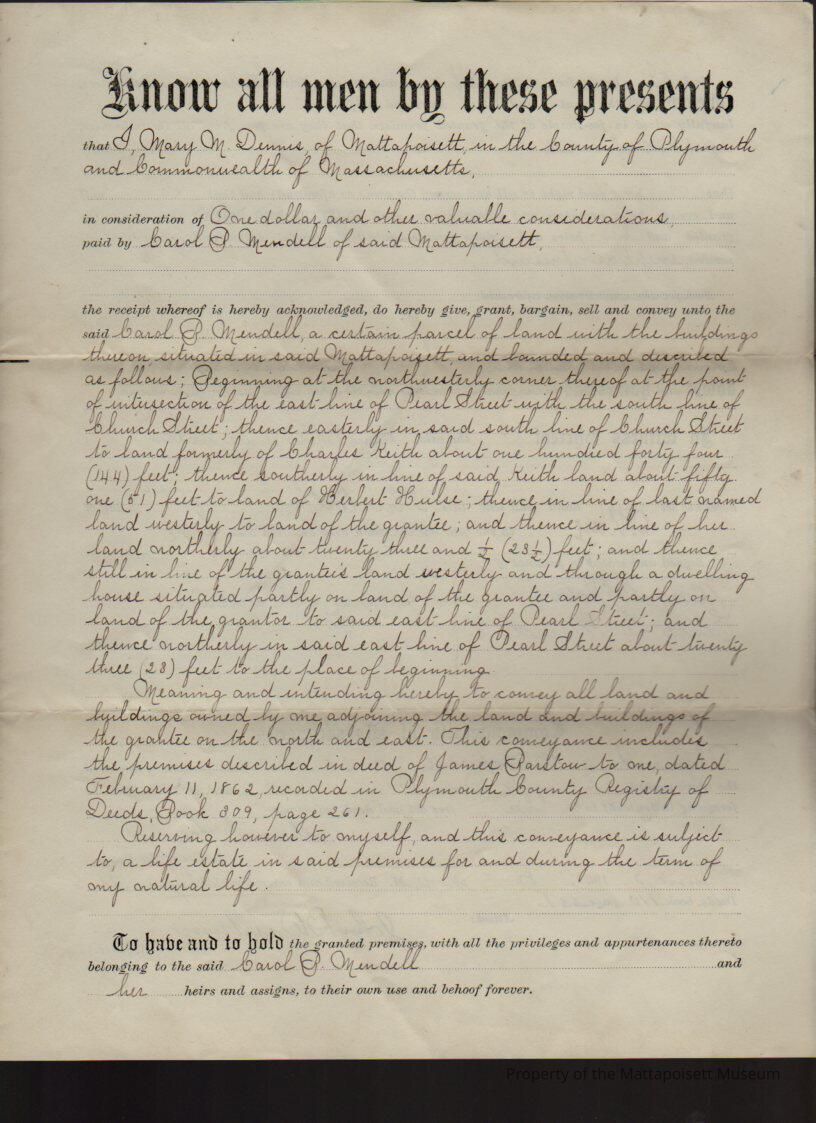 Know all men by these presents
that I, Mary M. Dennis, of Mattapoisett, in the County of Plymouth
and Commonwealth of Massachusetts,
in consideration of One dollar and other valuable considerations
paid by Carol P. Mendell of said Mattapoisett,
the receipt whereof is hereby acknowledged, do hereby give, grant, bargain, sell and convey unto the
said Carol P. Mendell, a certain parcel of land with the buildings
thereon situated in said Mattapoisett, and bounded and described
as follows; Beginning at the northwesterly corner thereof at the point
of intersection of the east line of Pearl Street with the south line of
Church Street; thence easterly in said south line of Church Street
to land formerly of Charles Keith about one hundred forty four
(144) feet; thence southerly in line of said Keith land about fifty
one (51) feet to land of Herbert Hulse; thence in line of last named
land westerly to land of the grantee; and thence in line of her
land northerly about twenty three and ½ (23½) feet; and thence
still in line of the grantee's land westerly and through a dwelling
house situated partly on land of the grantee and partly on
land of the grantor to said east line of Pearl Street; and
thence northerly in said east line of Pearl Street about twenty
three (23) feet to the place of beginning.
Meaning and intending hereby to convey all land and
buildings owned by me adjoining the land and buildings of
the grantee on the north and east. This conveyance includes
the premises described in deed of James Barstow to me, dated
February 11, 1862, recorded in Plymouth County Registry of
Deeds, Book 309, page 261.
Reserving however to myself, and this conveyance is subject
to, a life estate in said premises for and during the term of
my natural life.
To have and to hold the granted premises, with all the privileges and appurtenances thereto
belonging to the said Carol P. Mendell and
her heirs and assigns, to their own use and behoof forever.
Property of the Mattapoisett Museum